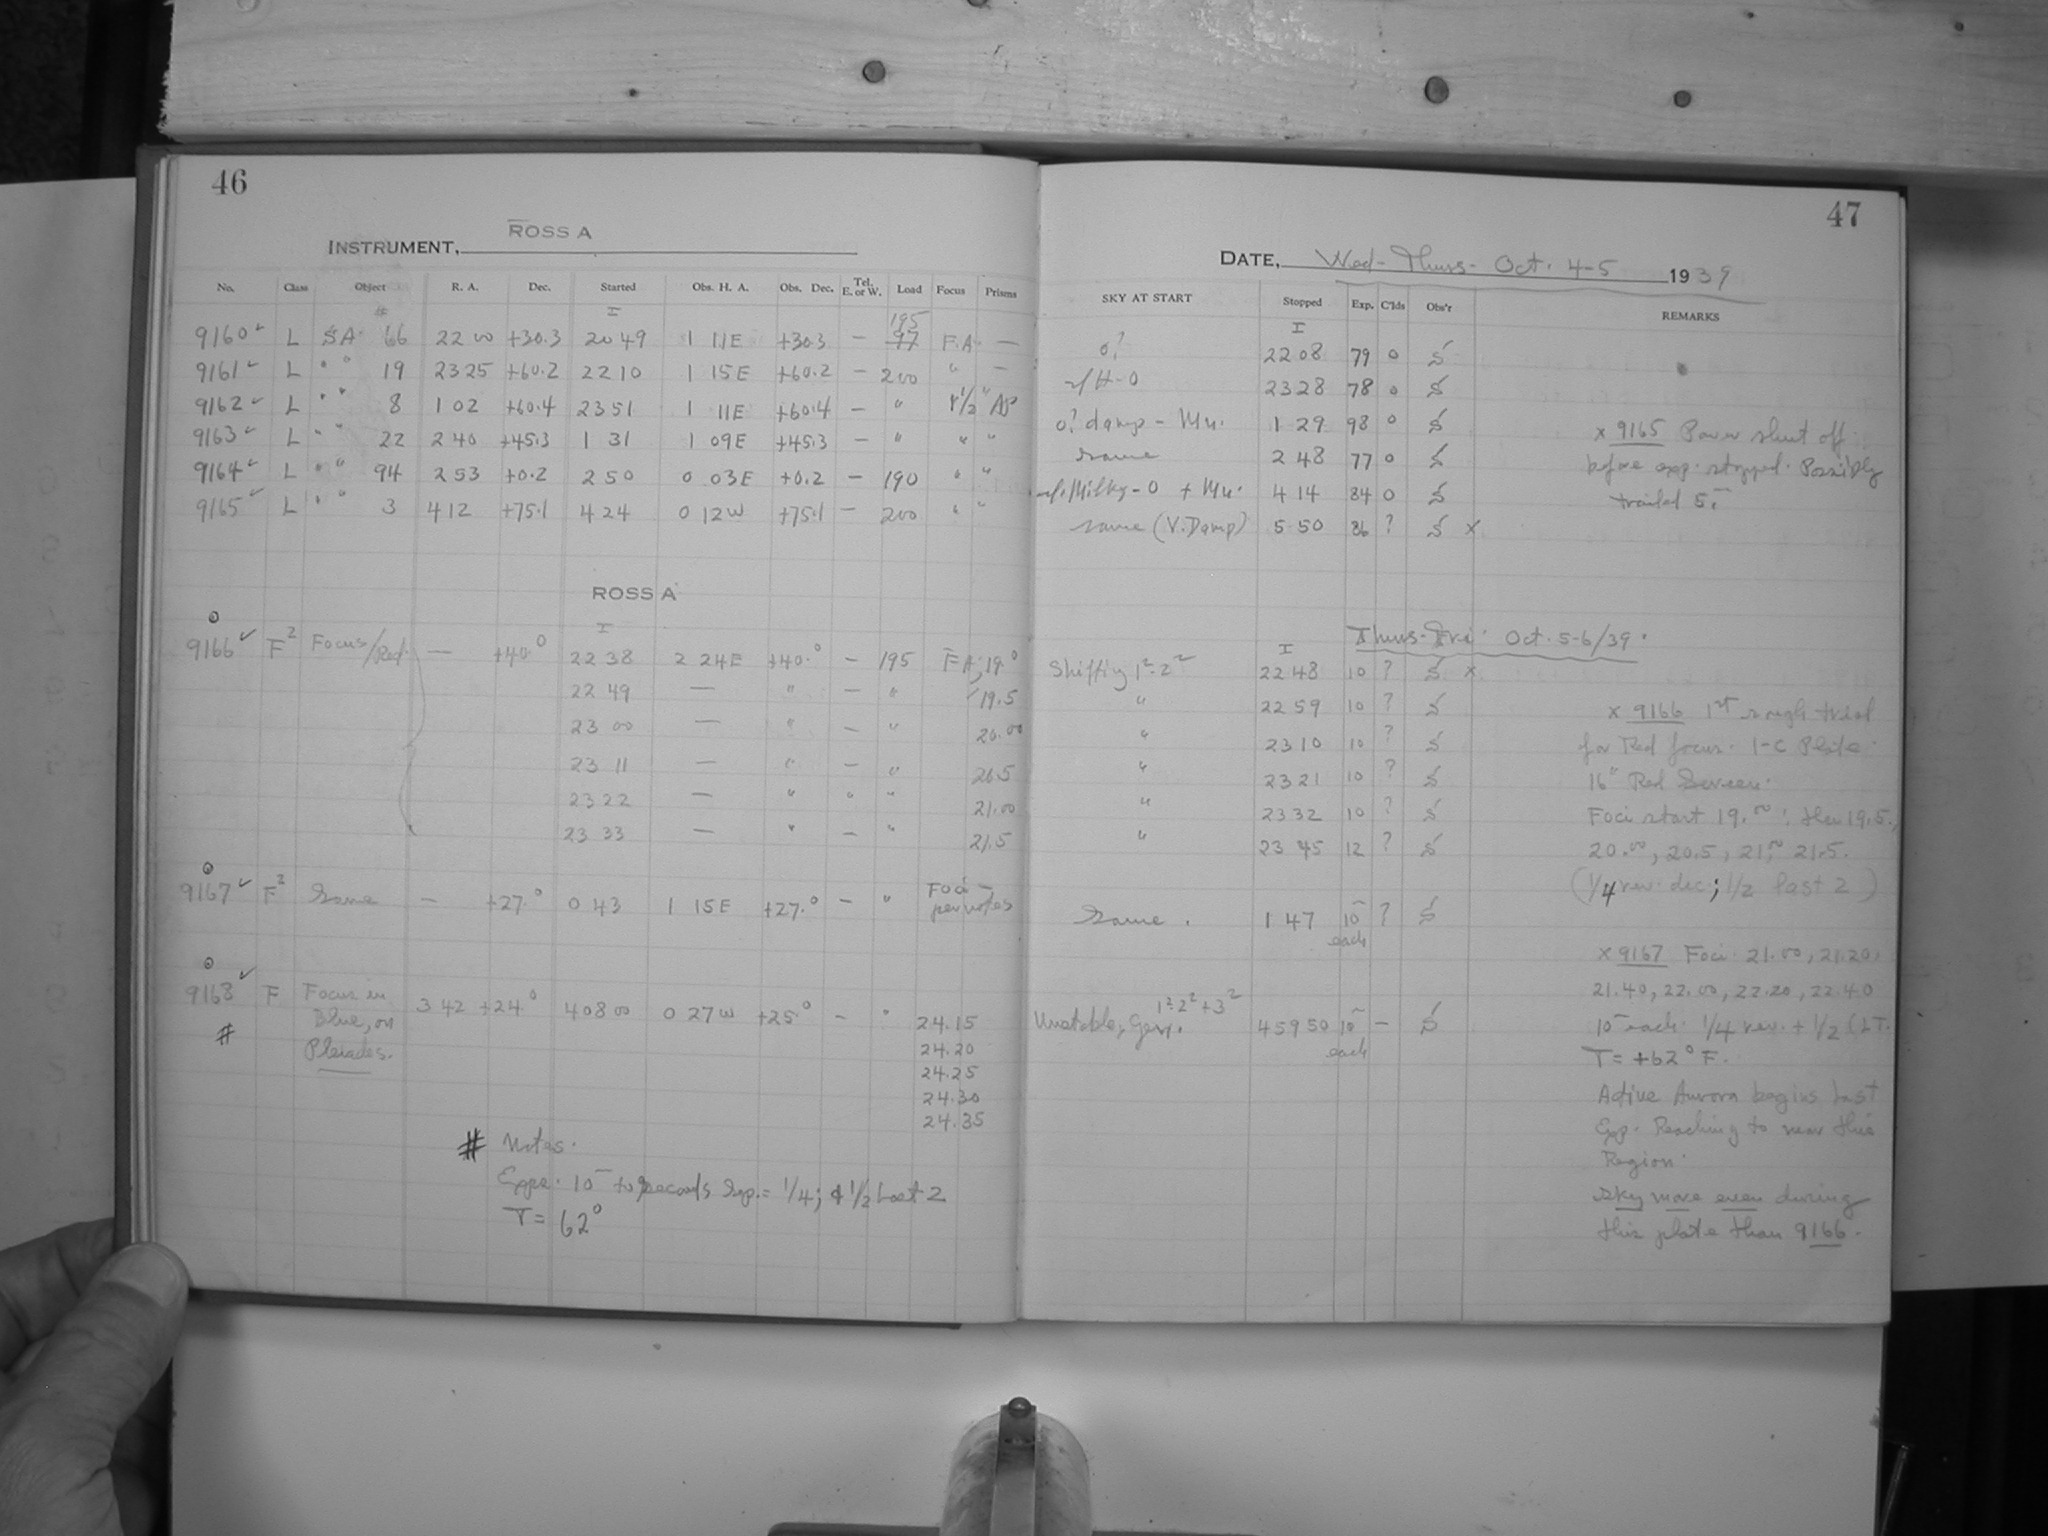 46
ROSS A
INSTRUMENT,
No. Class Object R. A. Dec. Started Obs. H. A. Obs. Dec. Tel. E. or W. Load Focus Prisms
# I 195
9160 ✓ L SA 66 22 00 +30.3 20 49 1 11E +30.3 — 97 F.A. —
9161 ✓ L " " 19 23 25 +60.2 22 10 1 15E +60.2 — 200 " —
9162 ✓ L " " 8 1 02 +60.4 23 51 1 11E +60.4 — "
9163 ✓ L " " 22 2 40 +45.3 1 31 1 09E +45.3 — " " "
9164 ✓ L " " 94 2 53 +0.2 2 50 0 03E +0.2 — 190 " "
9165 ✓ L " " 3 4 12 +75.1 4 24 0 12W +75.1 — 200 " "
ROSS A
I
9166 ✓ F² Focus/Red. — +40.° 22 38 2 24E +40.° — 195 FA, 19.°
22 49 — " — " 19.5
23 00 — " — " 20.00
23 11 — " — " 20.5
23 22 — " " " 21.00
23 33 — " — " 21.5
9167 ✓ F² Same — +27.° 0 43 1 15E +27.° — " Foci — per notes
9168 ✓ F Focus in 3 42 +24.° 4 08 00 0 27W +25.° — " 24.15
# Blue, on 24.20
Pleiades. 24.25
24.30
24.35
# Notes.
Exps. 10⁻ Sep. = 1/4; & 1/2 Last 2
T = 62°
47
DATE, Wed - Thurs - Oct. 4-5 1939
SKY AT START Stopped Exp. C'lds Obs'r REMARKS
I
o? 22 08 79 0 S
H-0 23 28 78 0 S
o? damp - Mu. 1 29 98 0 S
same 2 48 77 0 S
Milky-0 + Mu. 4 14 84 0 S
same (V. Damp) 5 50 86 ? S x
x 9165 Power shut off
before exp. stopped. Possibly
trailed 5.⁻
Thurs-Fri. Oct. 5-6/39.
I
Shifting 1²-2² 22 48 10 ? S x
" 22 59 10 ? S
" 23 10 10 ? S
" 23 21 10 ? S
" 23 32 10 ? S
" 23 45 12 ? S
x 9166 1st rough trial
for Red focus. 1-C Plate.
16" Red Screen.
Foci start 19.00; then 19.5,
20.00, 20.5, 21.00 21.5.
(1/4 rev. dec.; 1/2 last 2)
Same. 1 47 10⁻ each ? S
x 9167 Foci 21.00, 21.20,
21.40, 22.00, 22.20, 22.40
10⁻ each. 1/4 rev. + 1/2 (LT.
T = +62° F.
1²-2²+3²
Unstable, 4 59 50 10⁻ each — S
Active Aurora begins last
Exp. Reaching to near this
Region.
Sky more even during
this plate than 9166.